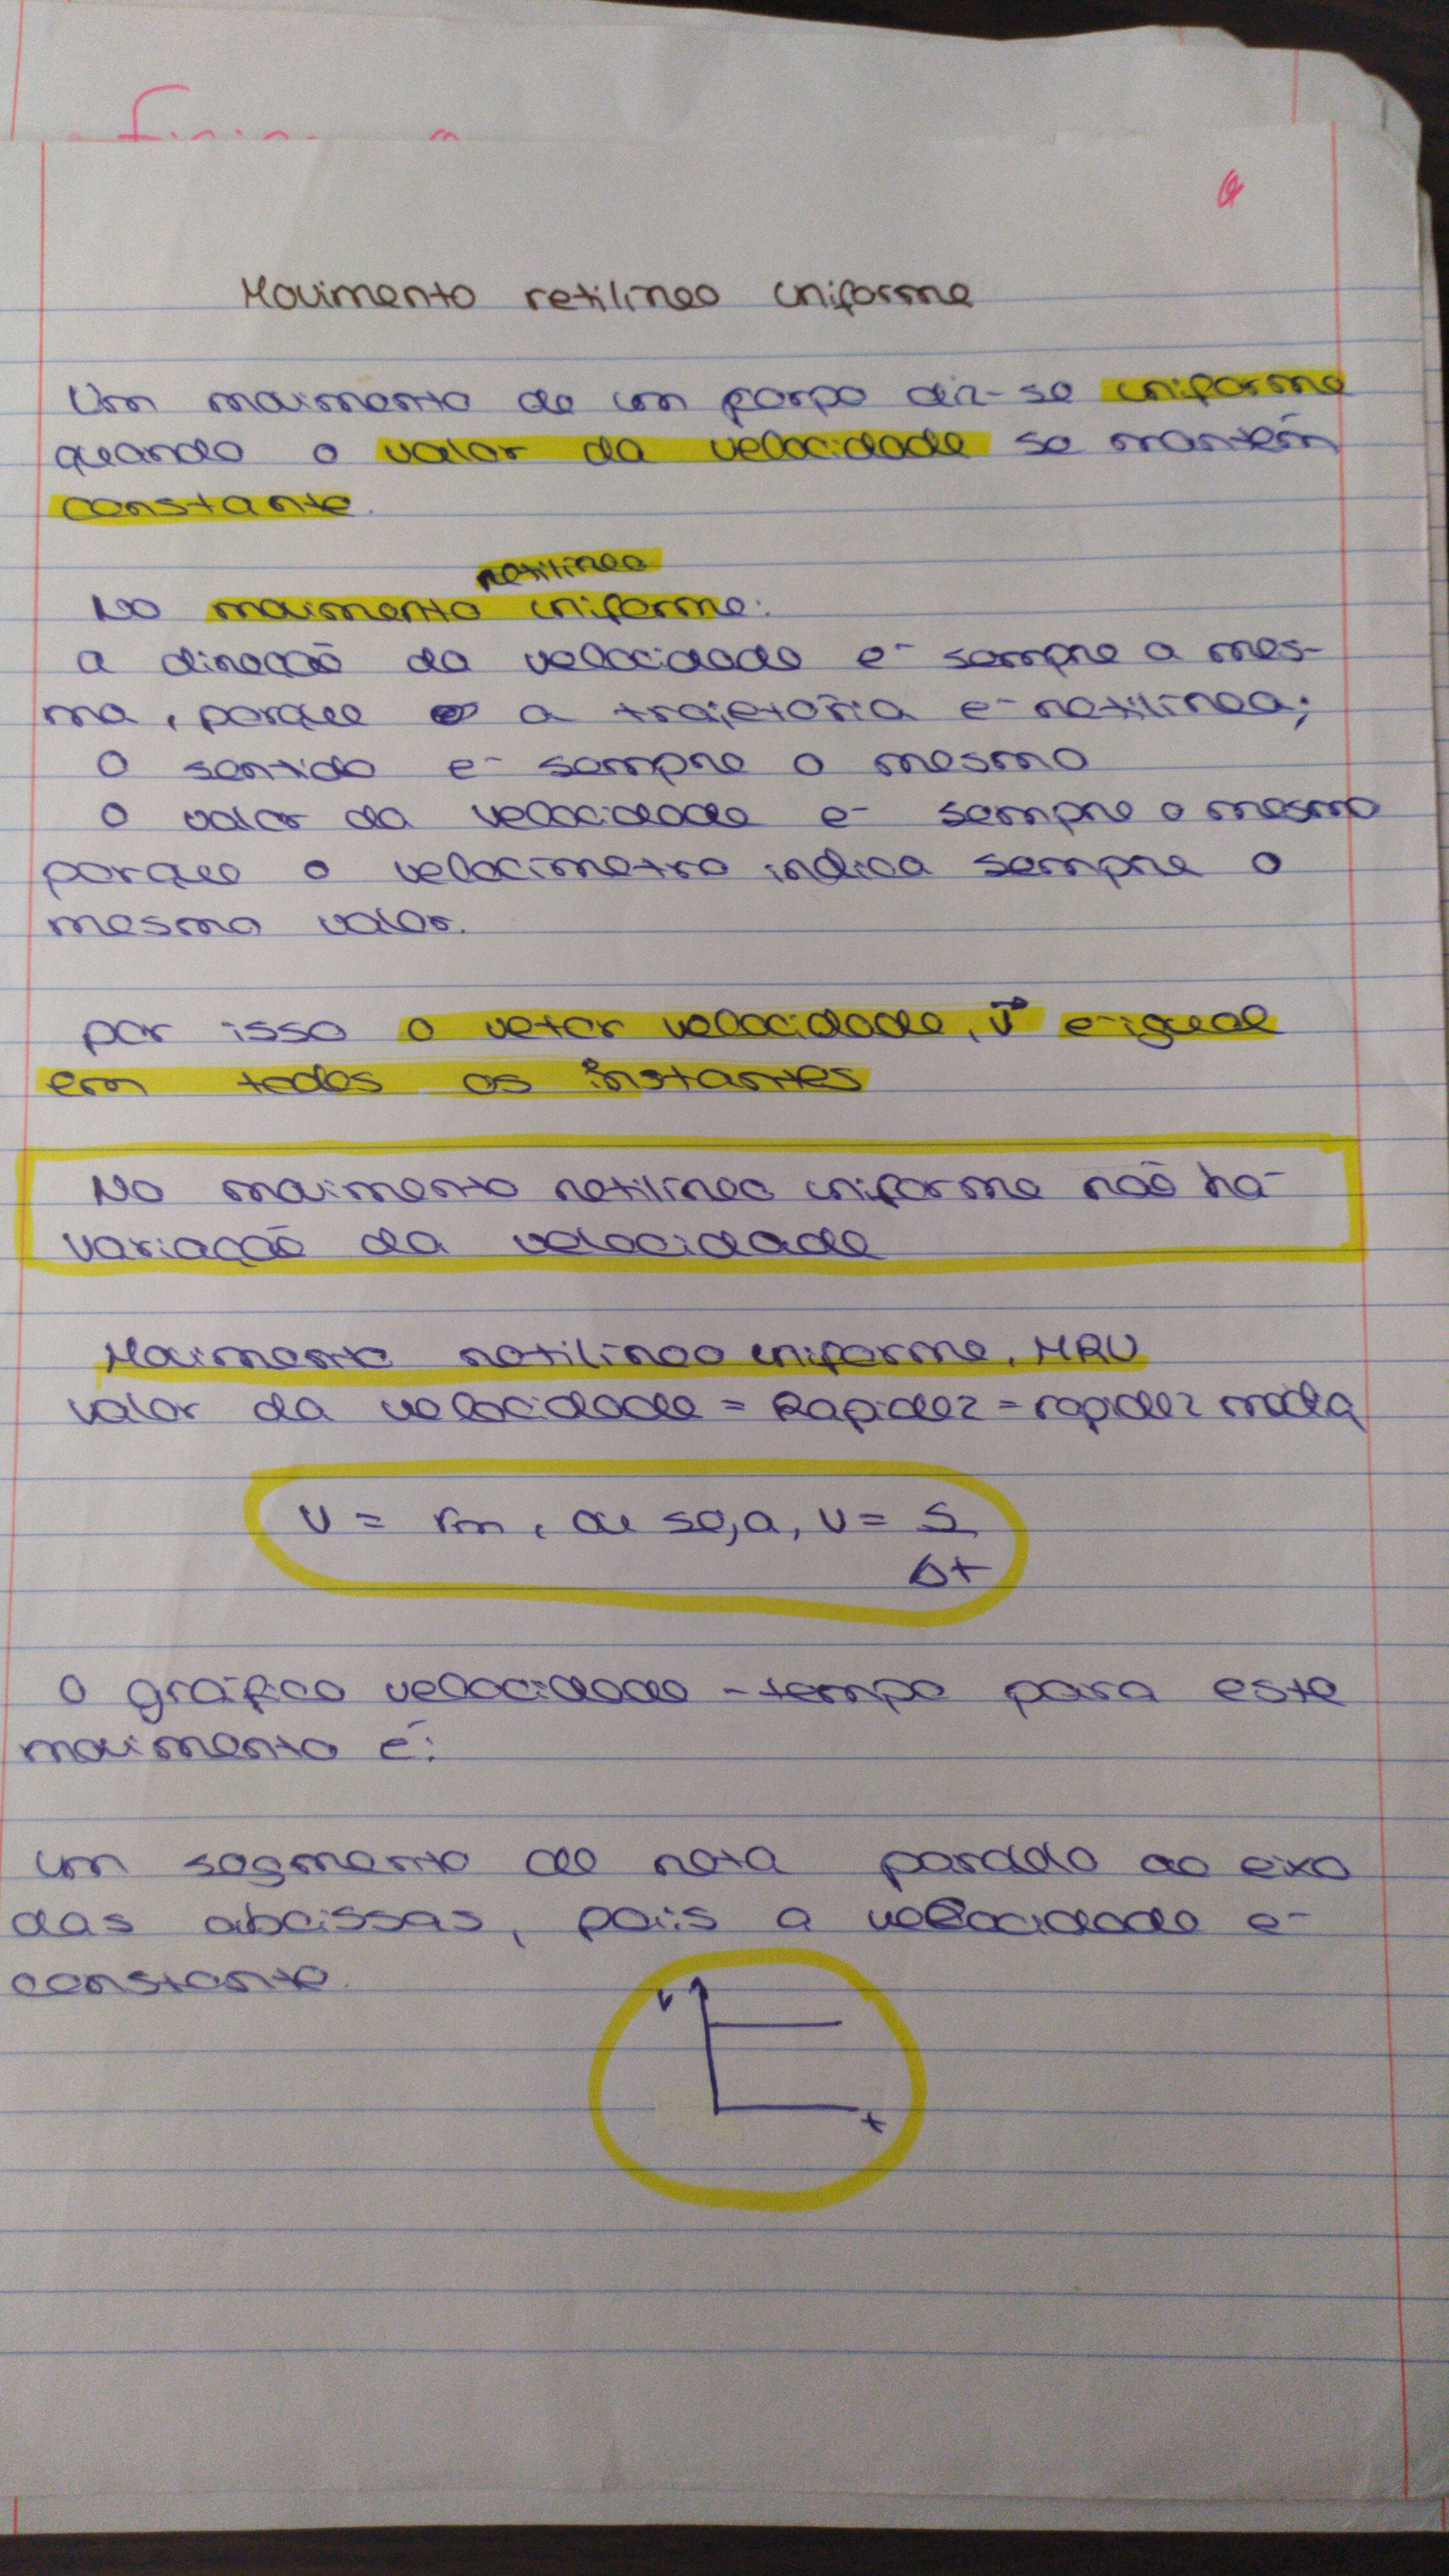 Movimento retilíneo uniforme
Um movimento de um corpo diz-se uniforme
quando o valor da velocidade se mantém
constante.
retilíneo
No movimento uniforme:
a direcção da velocidade é sempre a mes-
ma, porque a trajetória é retilínea;
O sentido é sempre o mesmo
O valor da velocidade é sempre o mesmo
porque o velocímetro indica sempre o
mesmo valor.
por isso o vetor velocidade, v⃗ é igual
em todos os instantes
No movimento retilíneo uniforme não há
variação da velocidade
Movimento retilíneo uniforme, MRU
valor da velocidade = Rapidez = rapidez média
v = rm, ou seja, v = s
Δt
O gráfico velocidade - tempo para este
movimento é:
um segmento de reta paralelo ao eixo
das abcissas, pois a velocidade é
constante.
v
t